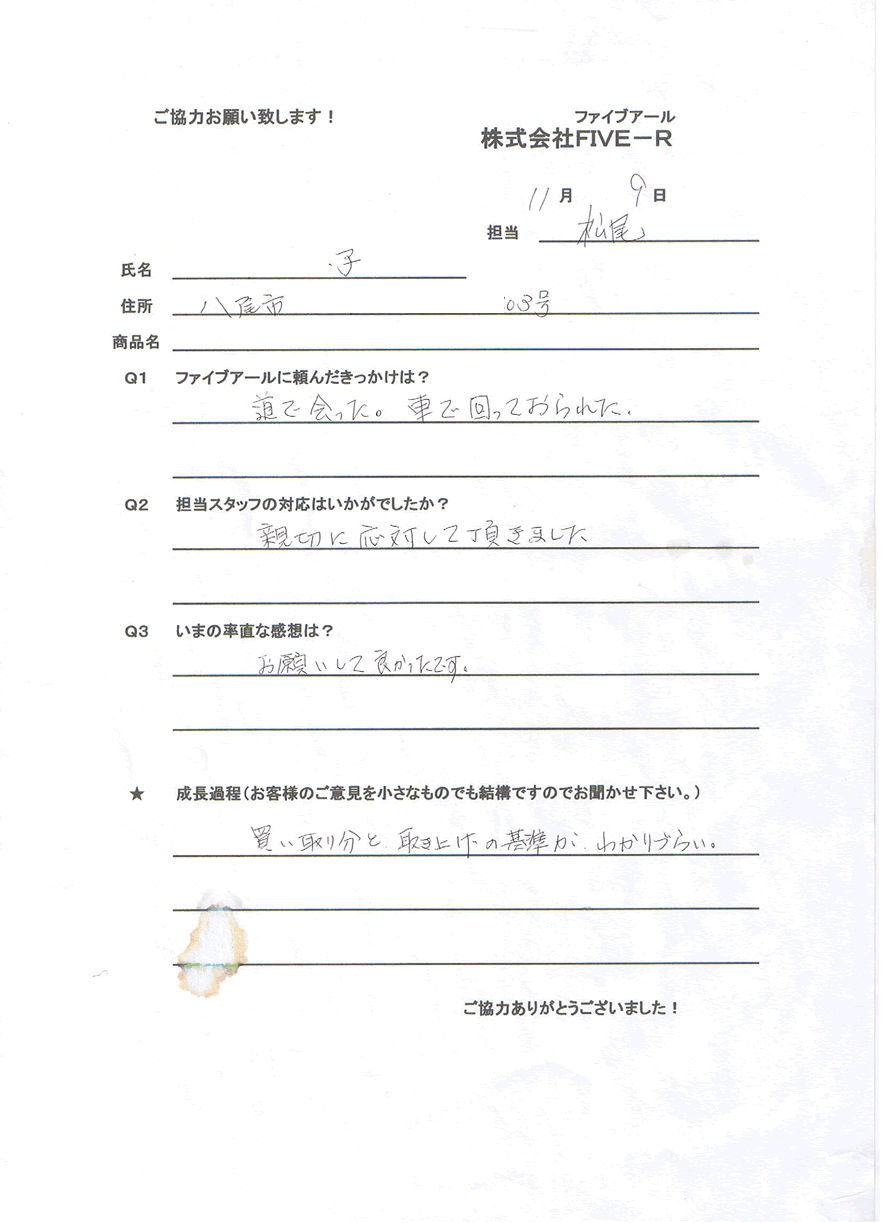 ご協力お願い致します！
ファイブアール
株式会社FIVE－R
11月 9日
担当 松尾
氏名 子
住所 八尾市 03号
商品名
Q1 ファイブアールに頼んだきっかけは？
道で会った。車で回っておられた.
Q2 担当スタッフの対応はいかがでしたか？
親切に応対して頂きました
Q3 いまの率直な感想は？
お願いして良かったです。
★ 成長過程（お客様のご意見を小さなものでも結構ですのでお聞かせ下さい。）
買い取り分と、取き上げの基準が、わかりづらい。
ご協力ありがとうございました！